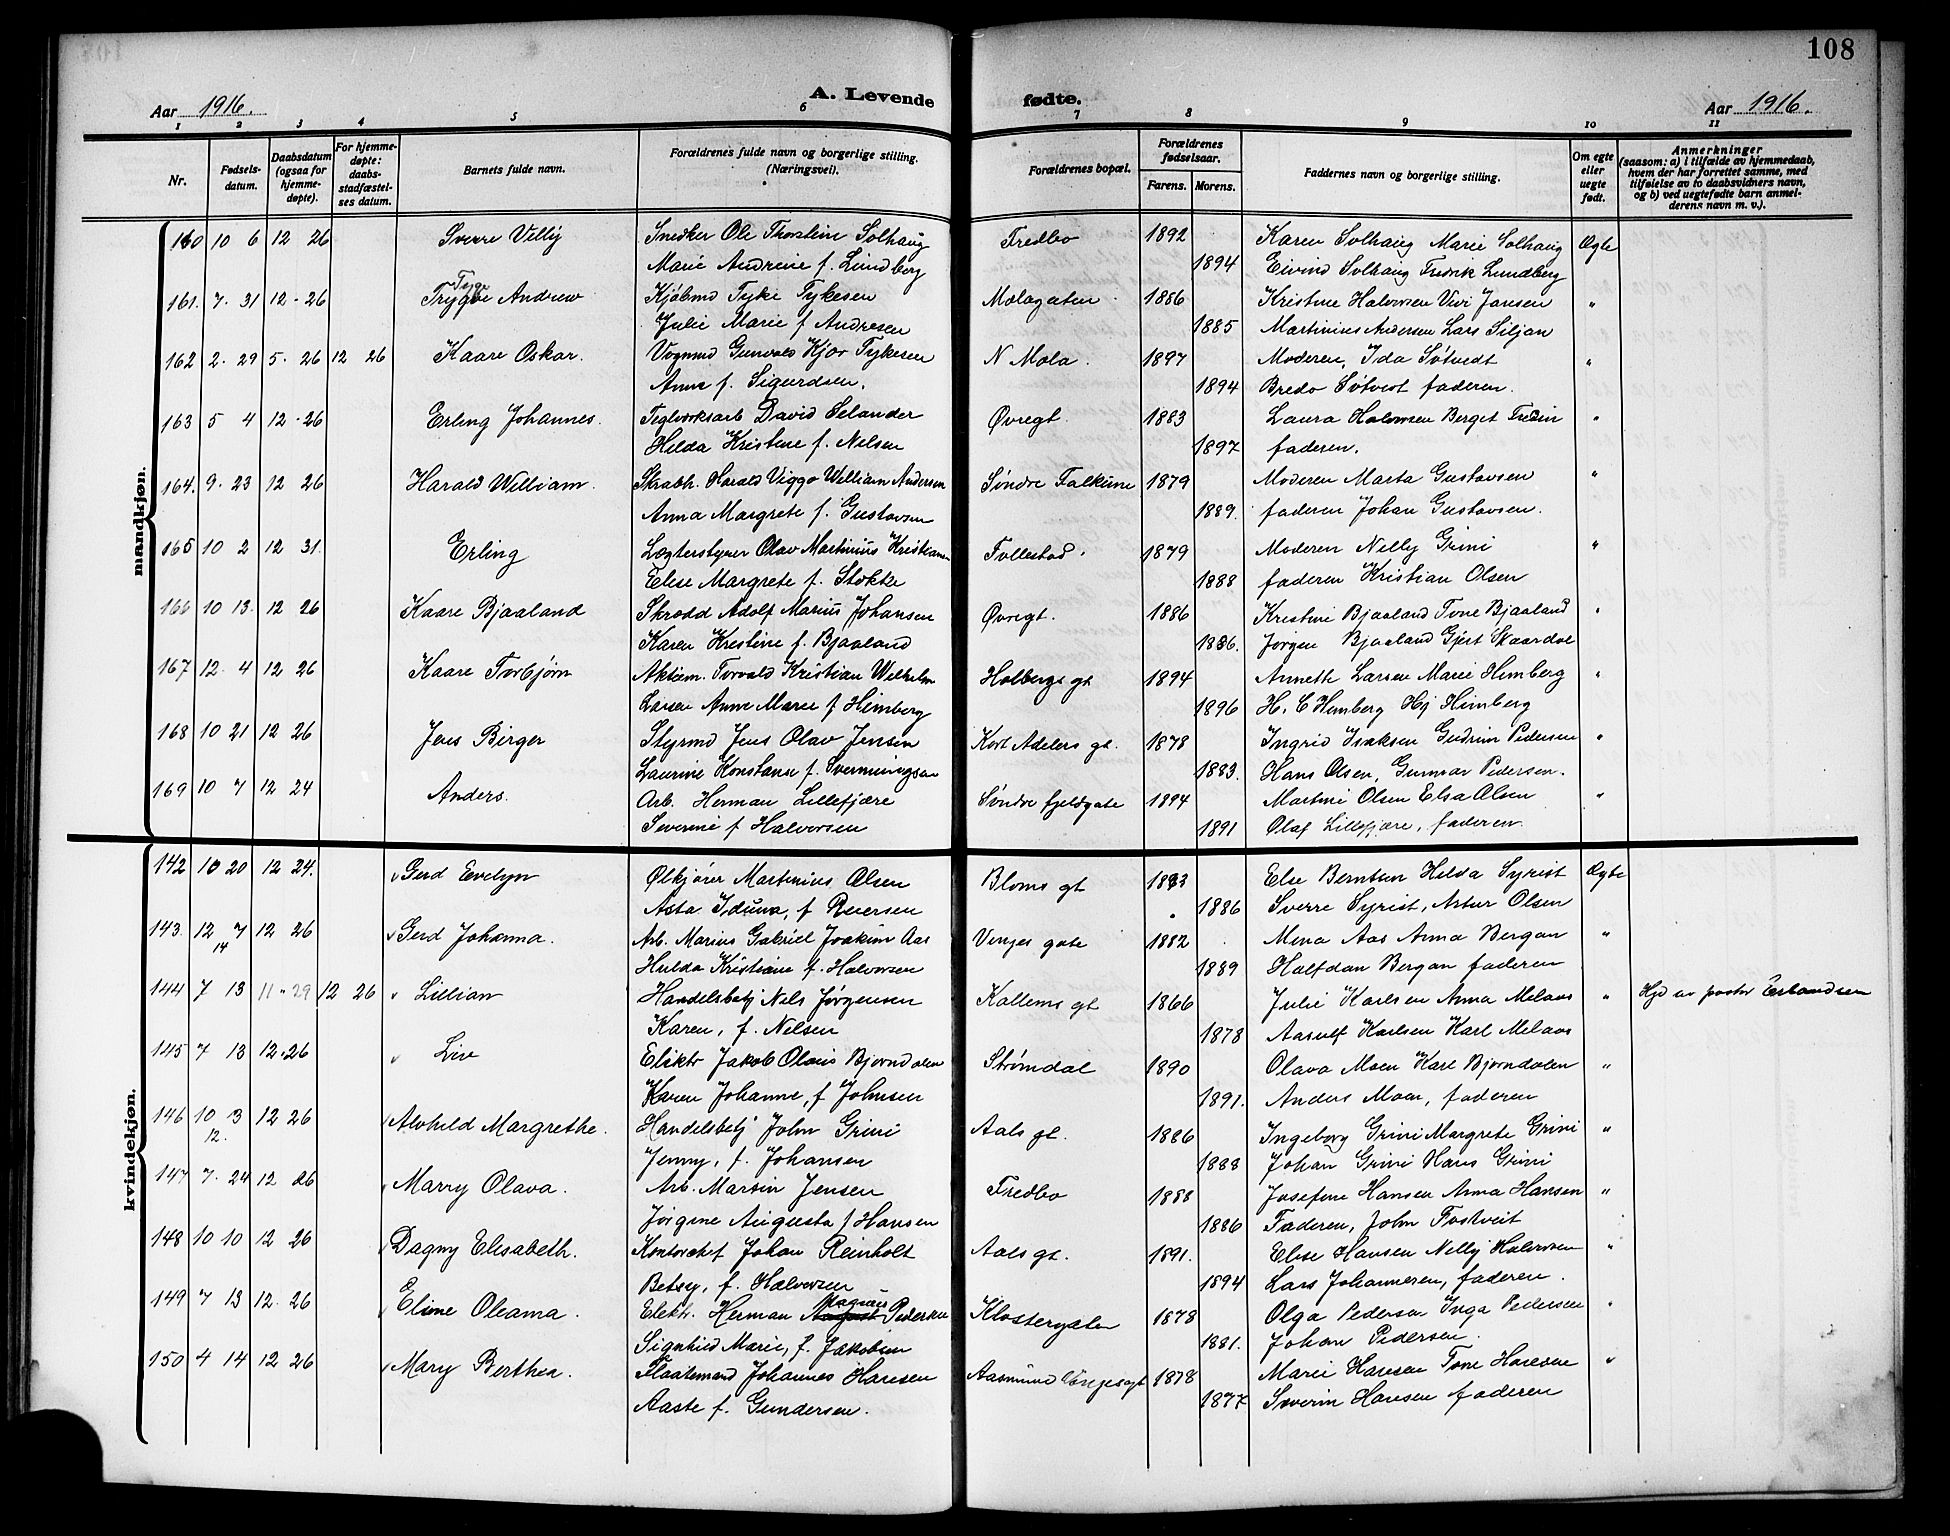 108
Aar 1916. A. Levende fødte. Aar 1916.
1 2 3 4 5 6 7 8 9 10 11
Nr. Fødsels-datum. Daabsdatum (ogsaa for hjemme-døpte). For hjemme-døpte: daabs-stadfæstel-ses datum. Barnets fulde navn. Forældrenes fulde navn og borgerlige stilling. (Næringsvei). Forældrenes bopæl. Forældrenes fødselsaar. Farens. Morens. Faddernes navn og borgerlige stilling. Om egte eller uegte født. Anmerkninger (saasom: a) i tilfælde av hjemmedaab, hvem der har forrettet samme, med tilføielse av to daabsvidners navn, og b) ved uegtefødte barn anmel-derens navn m. v.).
mandkjøn.
160 10 6 12 26 Sverre Villy Snedker Ole Thorstein Solhaug Fredbo 1892 Karen Solhaug Marie Solhaug Ægte
Marie Andrine f. Lundberg 1894 Eivind Solhaug Fredrik Lundberg
161. 7. 31 12-26 Trygve Tyge Andrew Kjøbmd Tyke Tykesen Mælagaten 1886 Kristine Halvorsen Vivi Jansen "
Julie Marie f Andresen 1885 Martinius Andersen Lars Siljan
162 2. 29 5. 26 12 26 Kaare Oskar. Vognmd Gunvald Kjør Tykesen N Mæla. 1897 Moderen, Ida Søtvedt "
Anna f. Sigurdsen. 1894 Bredo Søtvedt faderen.
163 5 4 12-26 Erling Johannes. Teglverksarb David Selander Øvregt. 1883 Laura Halvorsen Berget Fredin "
Hilda Kristine f. Nelsen 1897 faderen.
164. 9. 23 12 26 Harald William. Skrabh. Harald Viggo William Andersen Søndre Falkum 1879 Moderen Marta Gustavsen "
Anna Margrete f. Gustavsen 1889. faderen Johan Gustavsen.
165 10 2 12 31. Erling Lægterstyrer Olav Martinius Kristiansen Follestad. 1879 Moderen Nelly Grini "
Elise Margrete f. Stokke 1888 faderen Kristian Olsen
166 10 13. 12 26 Kaare Bjaaland Skrædd Adolf Marius Johansen Øvregt. 1886 Kristine Bjaaland Tone Bjaaland "
Karen Kristine f. Bjaaland 1886. Jørgen Bjaaland Gjert Skaardal
167 12. 4 12 26 Kaare Torbjørn Aktiem. Torvald Kristian Wilhelm Holbergs gt 1894 Annette Larsen Marie Himberg "
Larsen Anne Marie f Himberg 1896 H. C Himberg Hj Himberg
168 10 21 12 26 Jens Birger Styrmd Jens Olav Jensen Kort Adelers gt. 1878 Ingrid Isaksen Gudrun Pedersen "
Laurine Konstanse f. Svenningsen 1883. Hans Olsen, Gunnar Pedersen.
169 10 7 12 24 Anders. Arb. Herman Lillefjære Søndre fjeldgate 1894 Martine Olsen Elsa Olsen "
Severine f Halvorsen 1891 Olaf Lillefjære, faderen.
kvindekjøn.
142 10 20 12 24. Gerd Evelyn Ølkjører Martinius Olsen Bloms gt 1883 Else Berntsen Hilda Syrist Ægte
Asta Iduna, f Reiersen 1886 Sverre Syrist, Artur Olsen
143. 12 7 12 26 Gerd Johanna. Arb. Marius Gabriel Joakim Aas Venjes gate 1882 Mena Aas Anna Bergan "
14 Hulda Kristiane f. Halvorsen 1889 Halfdan Bergan faderen
144 7 13 11-29 12 26 Lillian Handelsbetj Nels Jørgensen Kallems gt 1866 Julie Karlsen Anna Melaas " Hjd av pastor Erlandsen
Karen, f. Nelsen 1878 Aasulf Karlsen Karl Melaas
145 7 13 12.26 Live Elektr Jakob Olaus Bjørndalen Strømdal 1890 Olava Moen Karl Bjørndalen "
Karen Johanne, f Johnsen 1891. Anders Moen, faderen
146 10 3 12 26 Alvhild Margrethe. Handelsbetj John Grini Aals gt. 1886 Ingeborg Grini Margrete Grini "
12. Jenny, f. Johansen 1888 Johan Grini Hans Grini
147 7. 24 12 26 Marry Olava. Arb. Martin Jensen Fredbo 1888 Josefine Hansen Anna Hansen "
Jørgine Augusta f Hansen 1886 Faderen, John Fostveit
148 10 10 12 26 Dagny Elisabeth. Kontorchef Johan Reinholt Aals gt. 1891. Elise Hansen Nelly Halvorsen "
Betsy, f. Halvorsen 1894 Lars Johannesen, faderen.
149 7 13 12. 26 Eline Oleama. Elektr. Herman August Magnus Pedersen Klostergaten 1878 Olga Pedersen Inga Pedersen "
Signhild Marie, f. Jakobsen 1881. Johan Pedersen.
150 4 14 12 26 Mary Berthea. Flaatemand Johannes Hansen Aasmund Vinjesgt 1878 Marie Hansen Tone Hansen "
Aaste f. Gundersen. 1877 Severin Hansen faderen